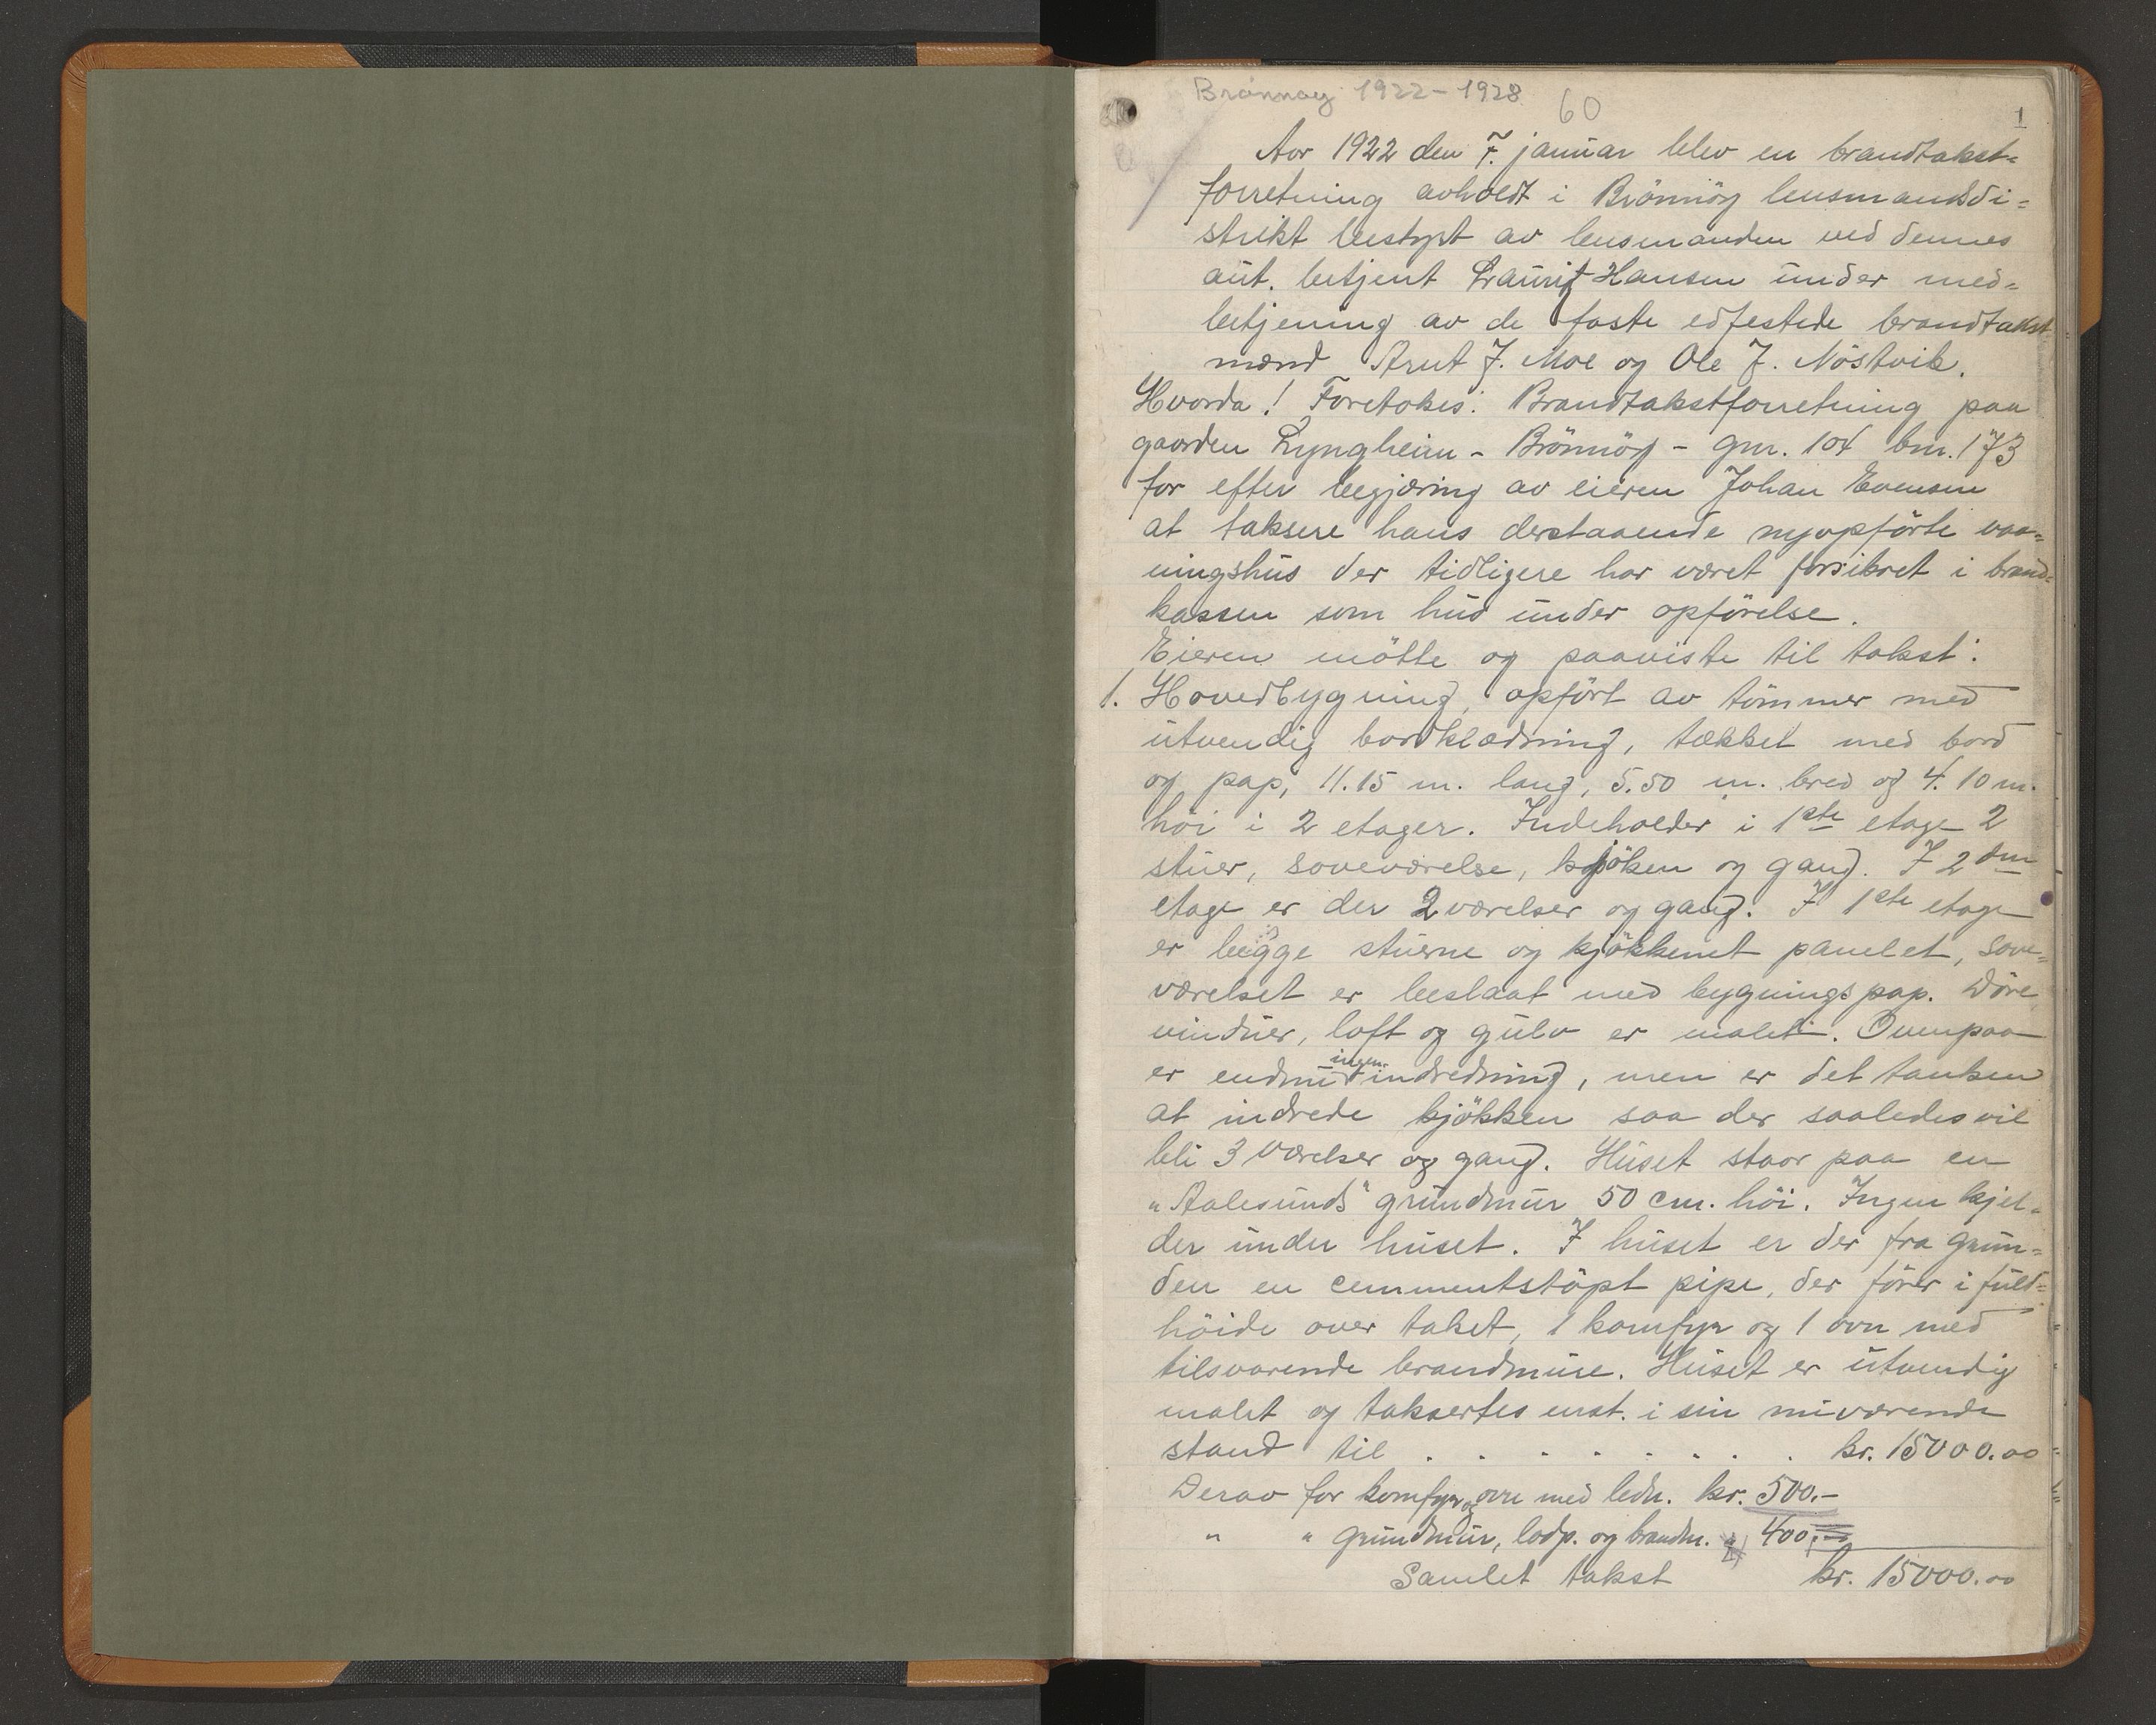 Brønnøy 1922-1928
60
1
Aar 1922 den 7. januar blev en brandtakst=
forretning avholdt i Brönnöy lensmandsdi=
strikt bestyrt av lensmanden ved dennes
aut. betjent Lauritz Hansen under med=
betjening av de faste edfestede brandtakst
mænd Arut J. Moe og Ole J. Nöstvik.
Hvorda! Foretokes: Brandtakstforretning paa
gaarden Lyngheim - Brönnöy - gnr. 104 bnr. 173
for efter begjæring av eieren Johan Evensen
at taksere hans derstaaende nyopförte vaa=
ningshus der tidligere har været forsikret i brand=
kassen som hus under opförelse.
Eieren mötte og paaviste til takst:
1. Hovedbygning, opfört av tömmer med
utvendig bordklædning, tækket med bord
og pap, 11.15 m. lang, 5.50 m. bred og 4.10 m.
höi i 2 etager. Indeholder i 1ste etage 2
stuer, soveværelse, kjöken og gang. I 2den
etage er der 2 værelser og gang. I 1ste etage
er begge stuerne og kjökkenet panelet, sove=
værelset er beslaat med bygningspap. Döre
vinduer, loft og gulv er malet. Ovenpaa
er endnu ingen indredning, men er det tanken
at indrede kjökken saa der saaledes vil
bli 3 værelser og gang. Huset staar paa en
"Aalesunds" grundmur 50 cm. höi. Ingen kjel=
der under huset. I huset er der fra grun=
den en cementstöpt pipe, der förer i fuld=
höide over taket, 1 komfyr og 1 ovn med
tilsvarende brandmure. Huset er utvendig
malet og taksertes enst. i sin nuværende
stand til . . . . . . . . . kr. 15000.00
Derav for komfyr og ovn med ledn. kr. 500.-
" " grundmur, lodp. og brandm. " 400.-
Samlet takst kr. 15000.00